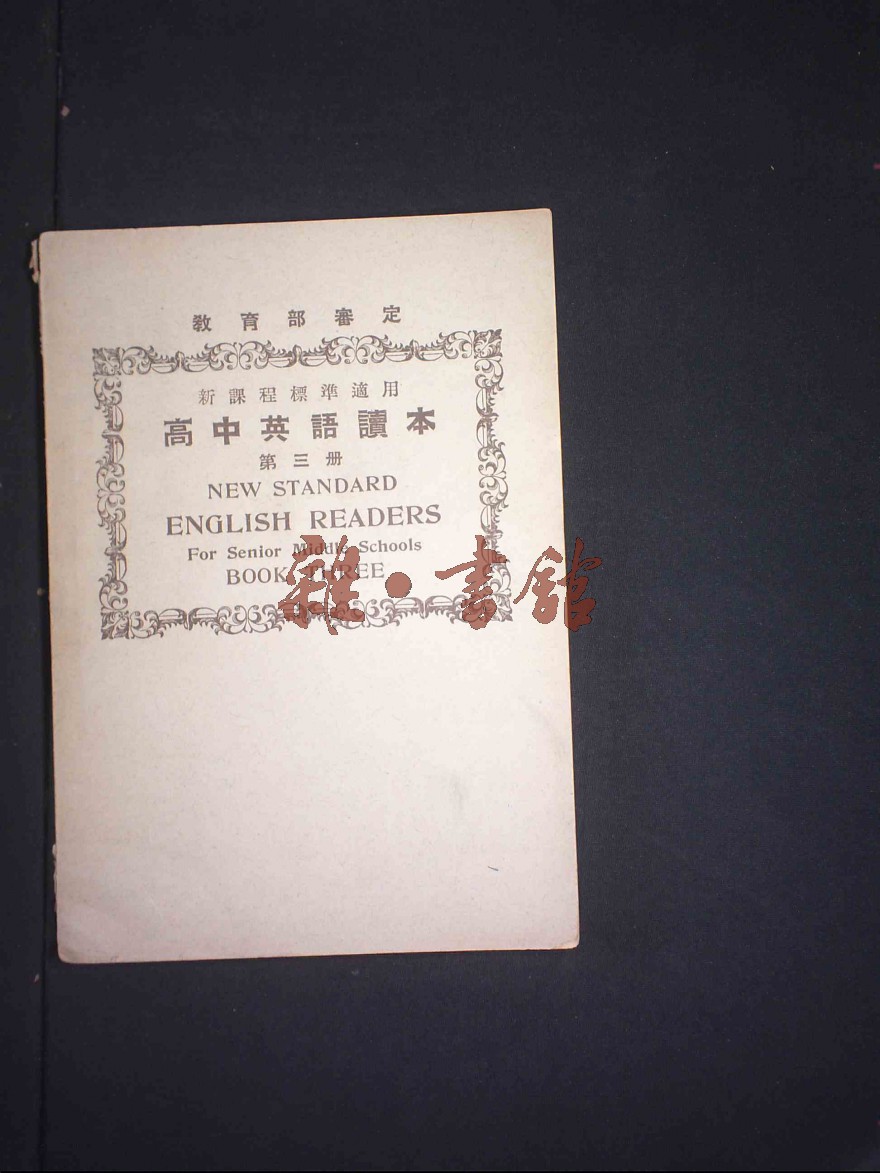 教育部審定
新課程標準適用
高中英語讀本
第三册
NEW STANDARD
ENGLISH READERS
For Senior Middle Schools
BOOK THREE
雜·書館